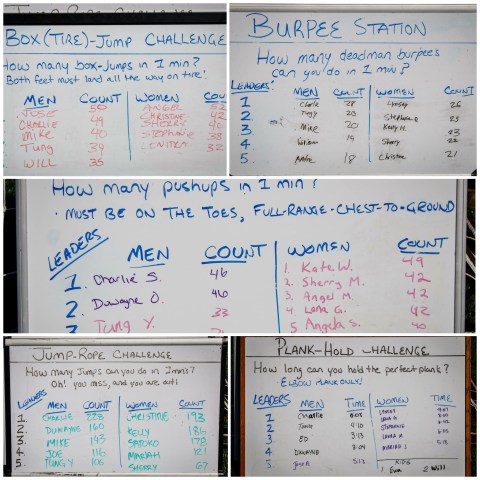 BOX(TIRE)-JUMP CHALLENGE
How many box-jumps in 1 min?
Both feet must land all the way on tire!
MEN COUNT WOMEN COU
JOSE 50 ANGEL 52
CHARLIE 49 CHRISTINE 42
MIKE 40 SHERRY 40
TUNG 39 STEPHANIE 38
WILL 35 LONITRA 32
BURPEE STATION
How many deadman burpees
can you do in 1 min?
LEADERS: MEN COUNT WOMEN COUNT
1 Charlie 28 Lynsey 26
2. Tugy 20 Stephanie 25
3. Mike 20 Kelly H. 23
4. William 19 Sherry 22
5. 18 Christine 21
How many pushups in 1 min?
• MUST BE ON THE TOES, FULL-RANGE-CHEST-TO-GROUND
LEADERS MEN COUNT WOMEN COUNT
1. Charlie S. 46 1. Kate W. 49
2. Duwayne O. 46 2. Sherry M. 42
3 Tung Y. 33 3. Angel M. 42
4 Lana G. 42
5 Angela S. 40
JUMP-ROPE CHALLENGE
How many Jumps can you do in 1min?
Oh! you miss, and you are out!
LEADERS MEN COUNT WOMEN COUNT
1. CHARLIE 223 CHRISTINE 193
2. DUWAYNE 160 KELLY 186
3. MIKE 143 SATOKO 178
4. JOE 116 MARIAH 121
5. TUNG Y 106 SHERRY 67
PLANK-HOLD CHALLENGE
How long can you hold the perfect plank?
ELBOW PLANK ONLY!
LEADERS MEN TIME WOMEN TIME
1 Charlie
2 Tung 4:10
3 ED 3:13 STEPHANIE
4 DUWAYNE 3:04 LAURA M
5 3:13 MARIAH J
KIDS
1 Eva 2 Will